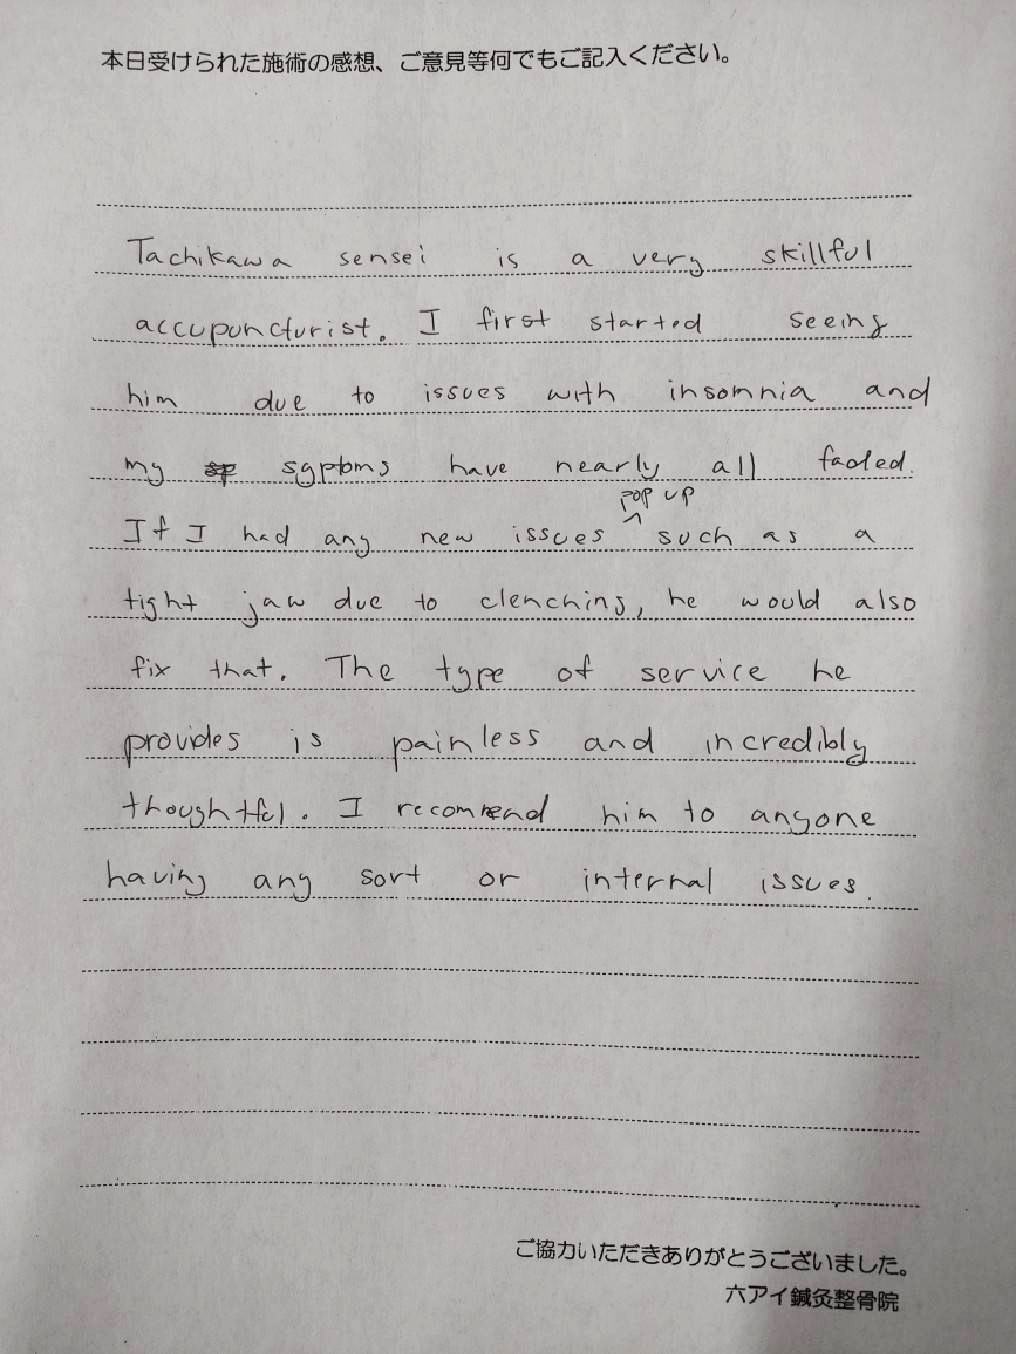 本日受けられた施術の感想、ご意見等何でもご記入ください。
Tachikawa sensei is a very skillful
accupuncturist. I first started seeing
him due to issues with insomnia and
my syptoms have nearly all faded.
If I had any new issues pop up such as a
tight jaw due to clenching, he would also
fix that. The type of service he
provides is painless and incredibly
thoughtful. I recommend him to anyone
having any sort or internal issues.
ご協力いただきありがとうございました。
六アイ鍼灸整骨院